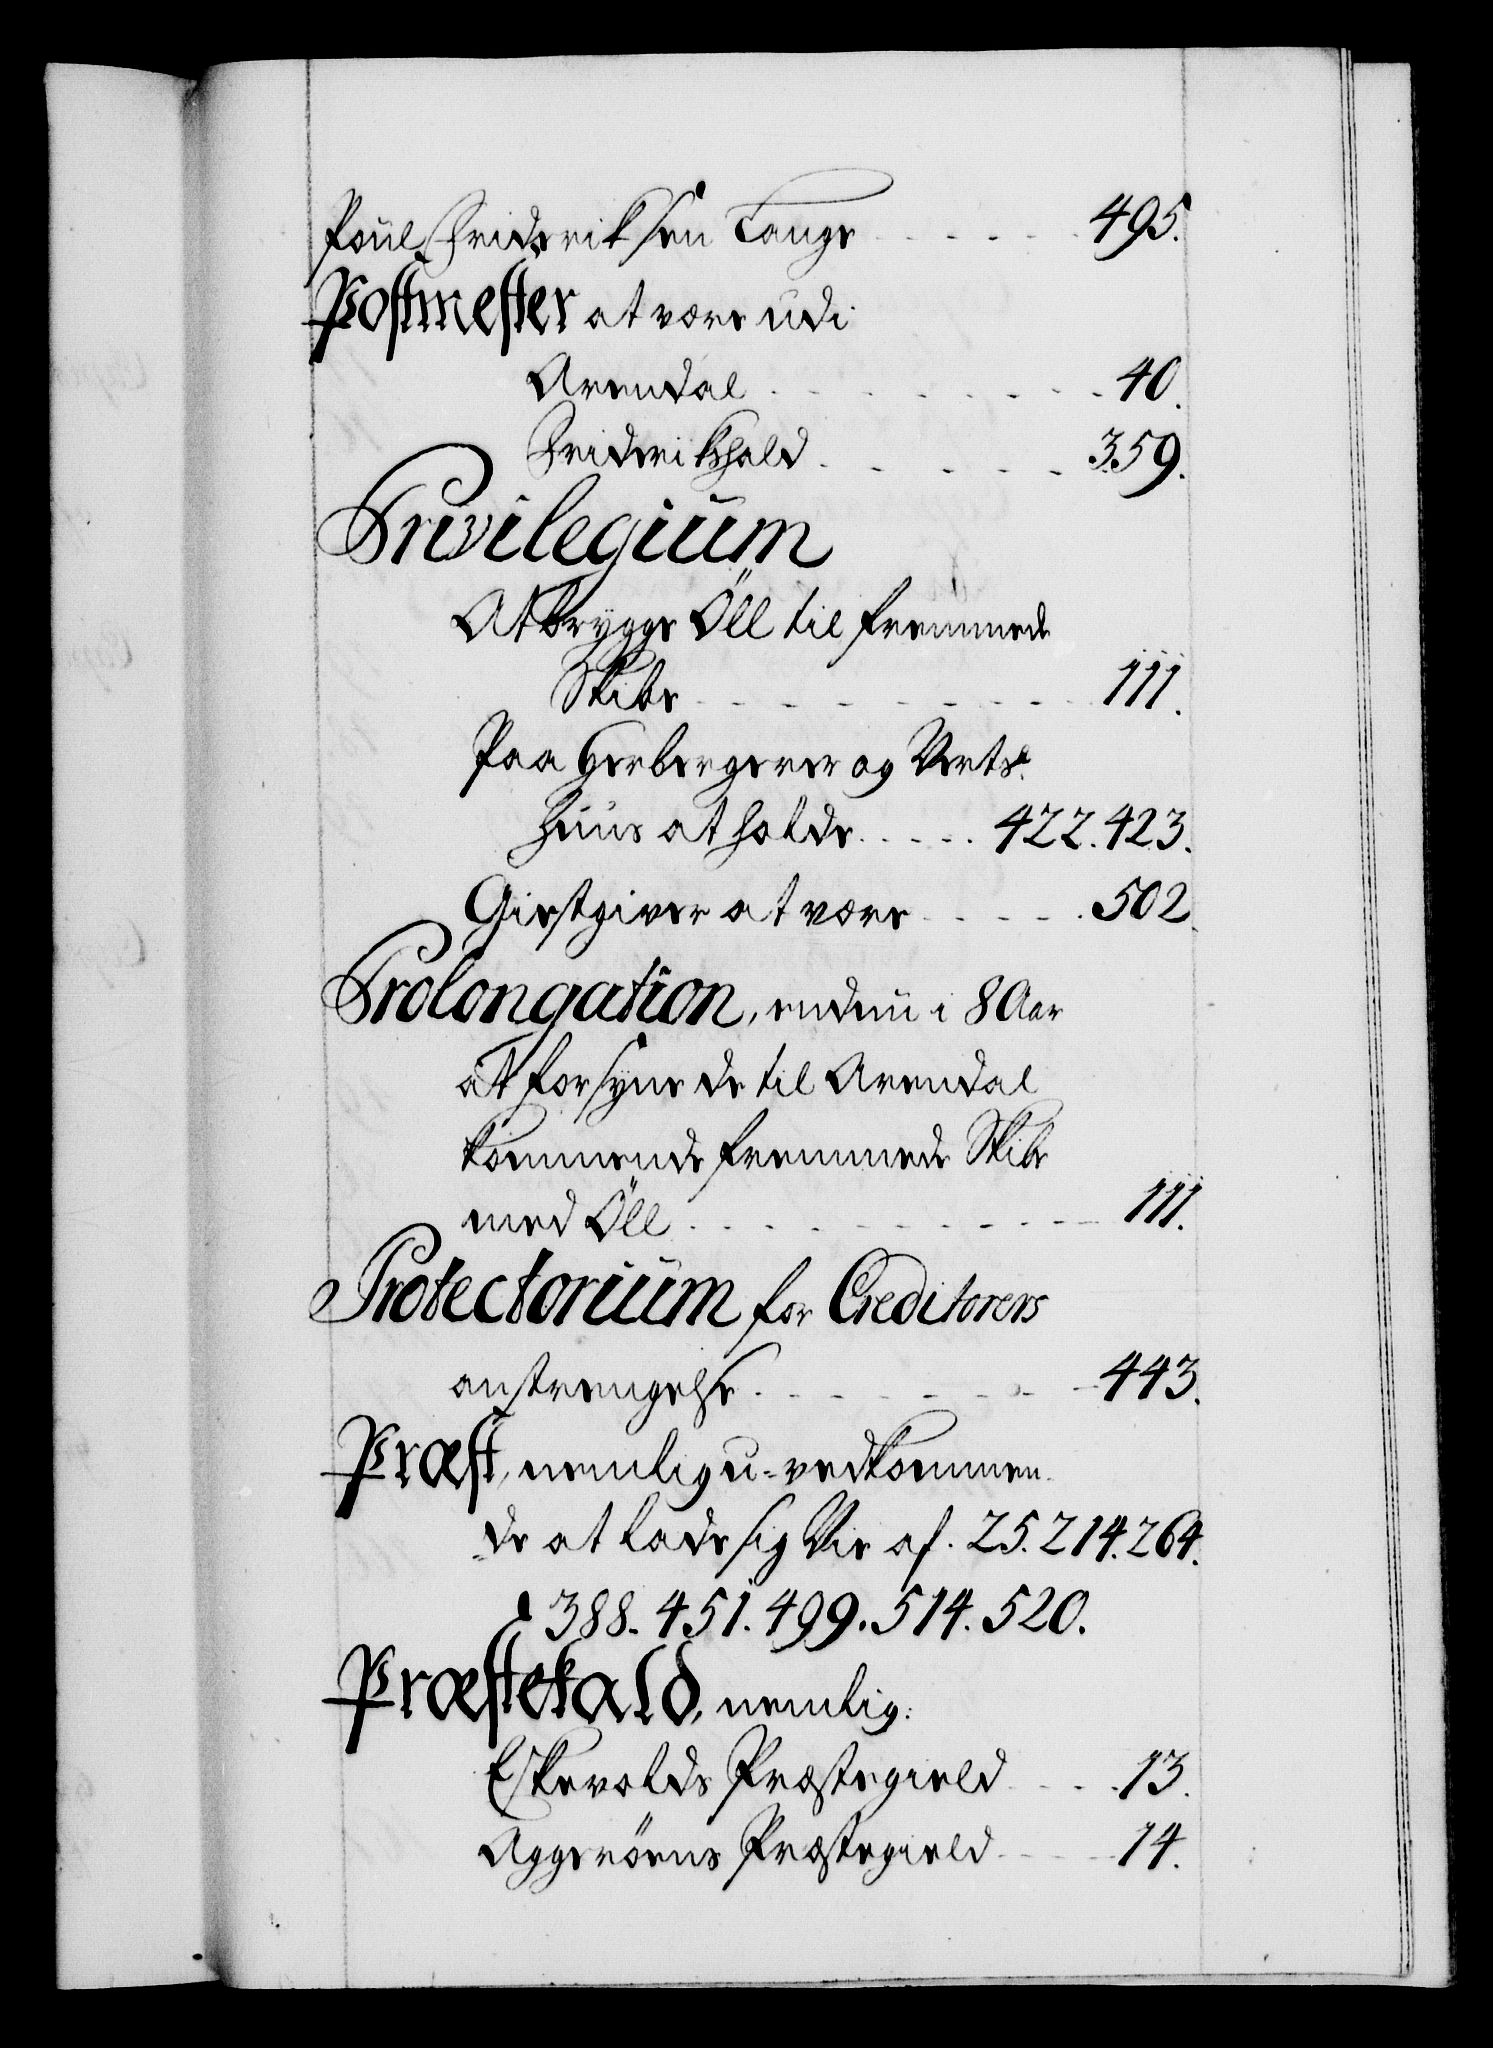 Poul Friderichsen Lange - - - - 495.
Postmester at være udi
Arendal - - - - - - - 40.
Friderikshald - - - - - 359.
Privilegium
At brygge Öll til fremmede
Skibe - - - - - - - - 111.
Paa Herbergerer og Verts-
huus at holde - - - - 422. 423.
Giestgiver at være - - - - 502.
Prolongation, endnu i 8 Aar
at forsyne de til Arendal
kommende fremmede Skibe
med Öll - - - - - - - - 111.
Protectorium for Creditorers
anstrengelse - - - - - - - 443.
Præst, nemlig u-vedkommen-
de at lade sig Vie af. 25. 214. 264.
388. 451. 499. 514. 520.
Præstekald, nemlig:
Eskevolds Præstegield - - - 13.
Aggerøens Præstegield - - - 14.